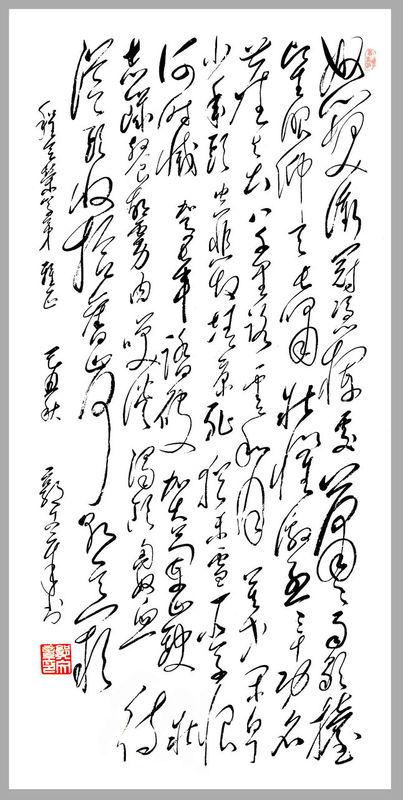 怒发冲冠凭栏处潇潇雨歇擡
望眼仰天长啸壮怀激烈三十功名
尘与土八千里路云和月莫等闲白了
少年头空悲切靖康耻犹未雪臣子恨
何时灭驾长车踏破贺兰山缺壮
志饥餐胡虏肉笑谈渴饮匈奴血待
从头收拾旧山河朝天阙
雅正 己丑秋 郭文书